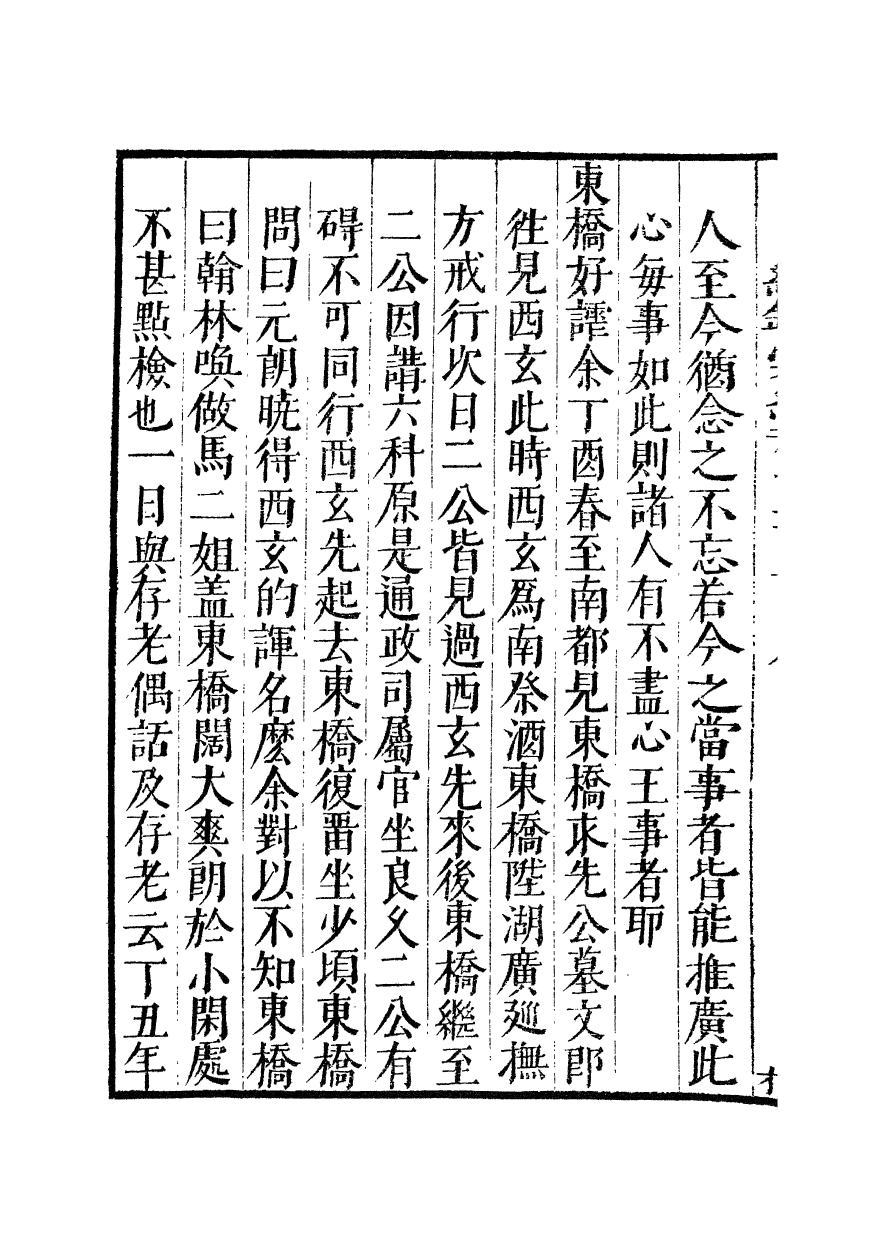 人至今猶念之不忘若今之當事者皆能推廣此
心每事如此則諸人有不盡心王事者耶
東橋好謔余丁酉春至南都見東橋求先公墓文即
徃見西玄此時西玄爲南祭酒東橋陞湖廣廵撫
方戒行次日二公皆見過西玄先來後東橋繼至
二公因講六科原是通政司屬官坐良乆二公有
碍不可同行西玄先起去東橋復畱坐少頃東橋
問曰元朗曉得西玄的諢名麽余對以不知東橋
曰翰林喚做馬二姐盖東橋闊大爽朗於小閑處
不甚點檢也一日與存老偶話及存老云丁丑年